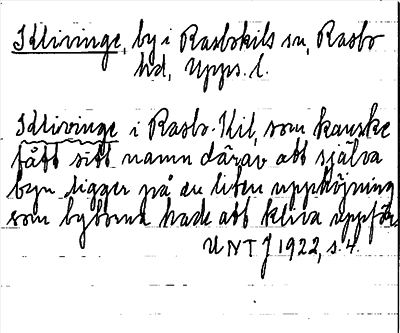 Klivinge, by i Rasbokils sn, Rasbo
hd, Upps. l.
Klivinge i Rasbo-Kil, som kanske
fått sitt namn därav att själva
byn ligger på en liten upphöjning
som byborna hade att kliva uppför.
UNT J 1922, s. 4.